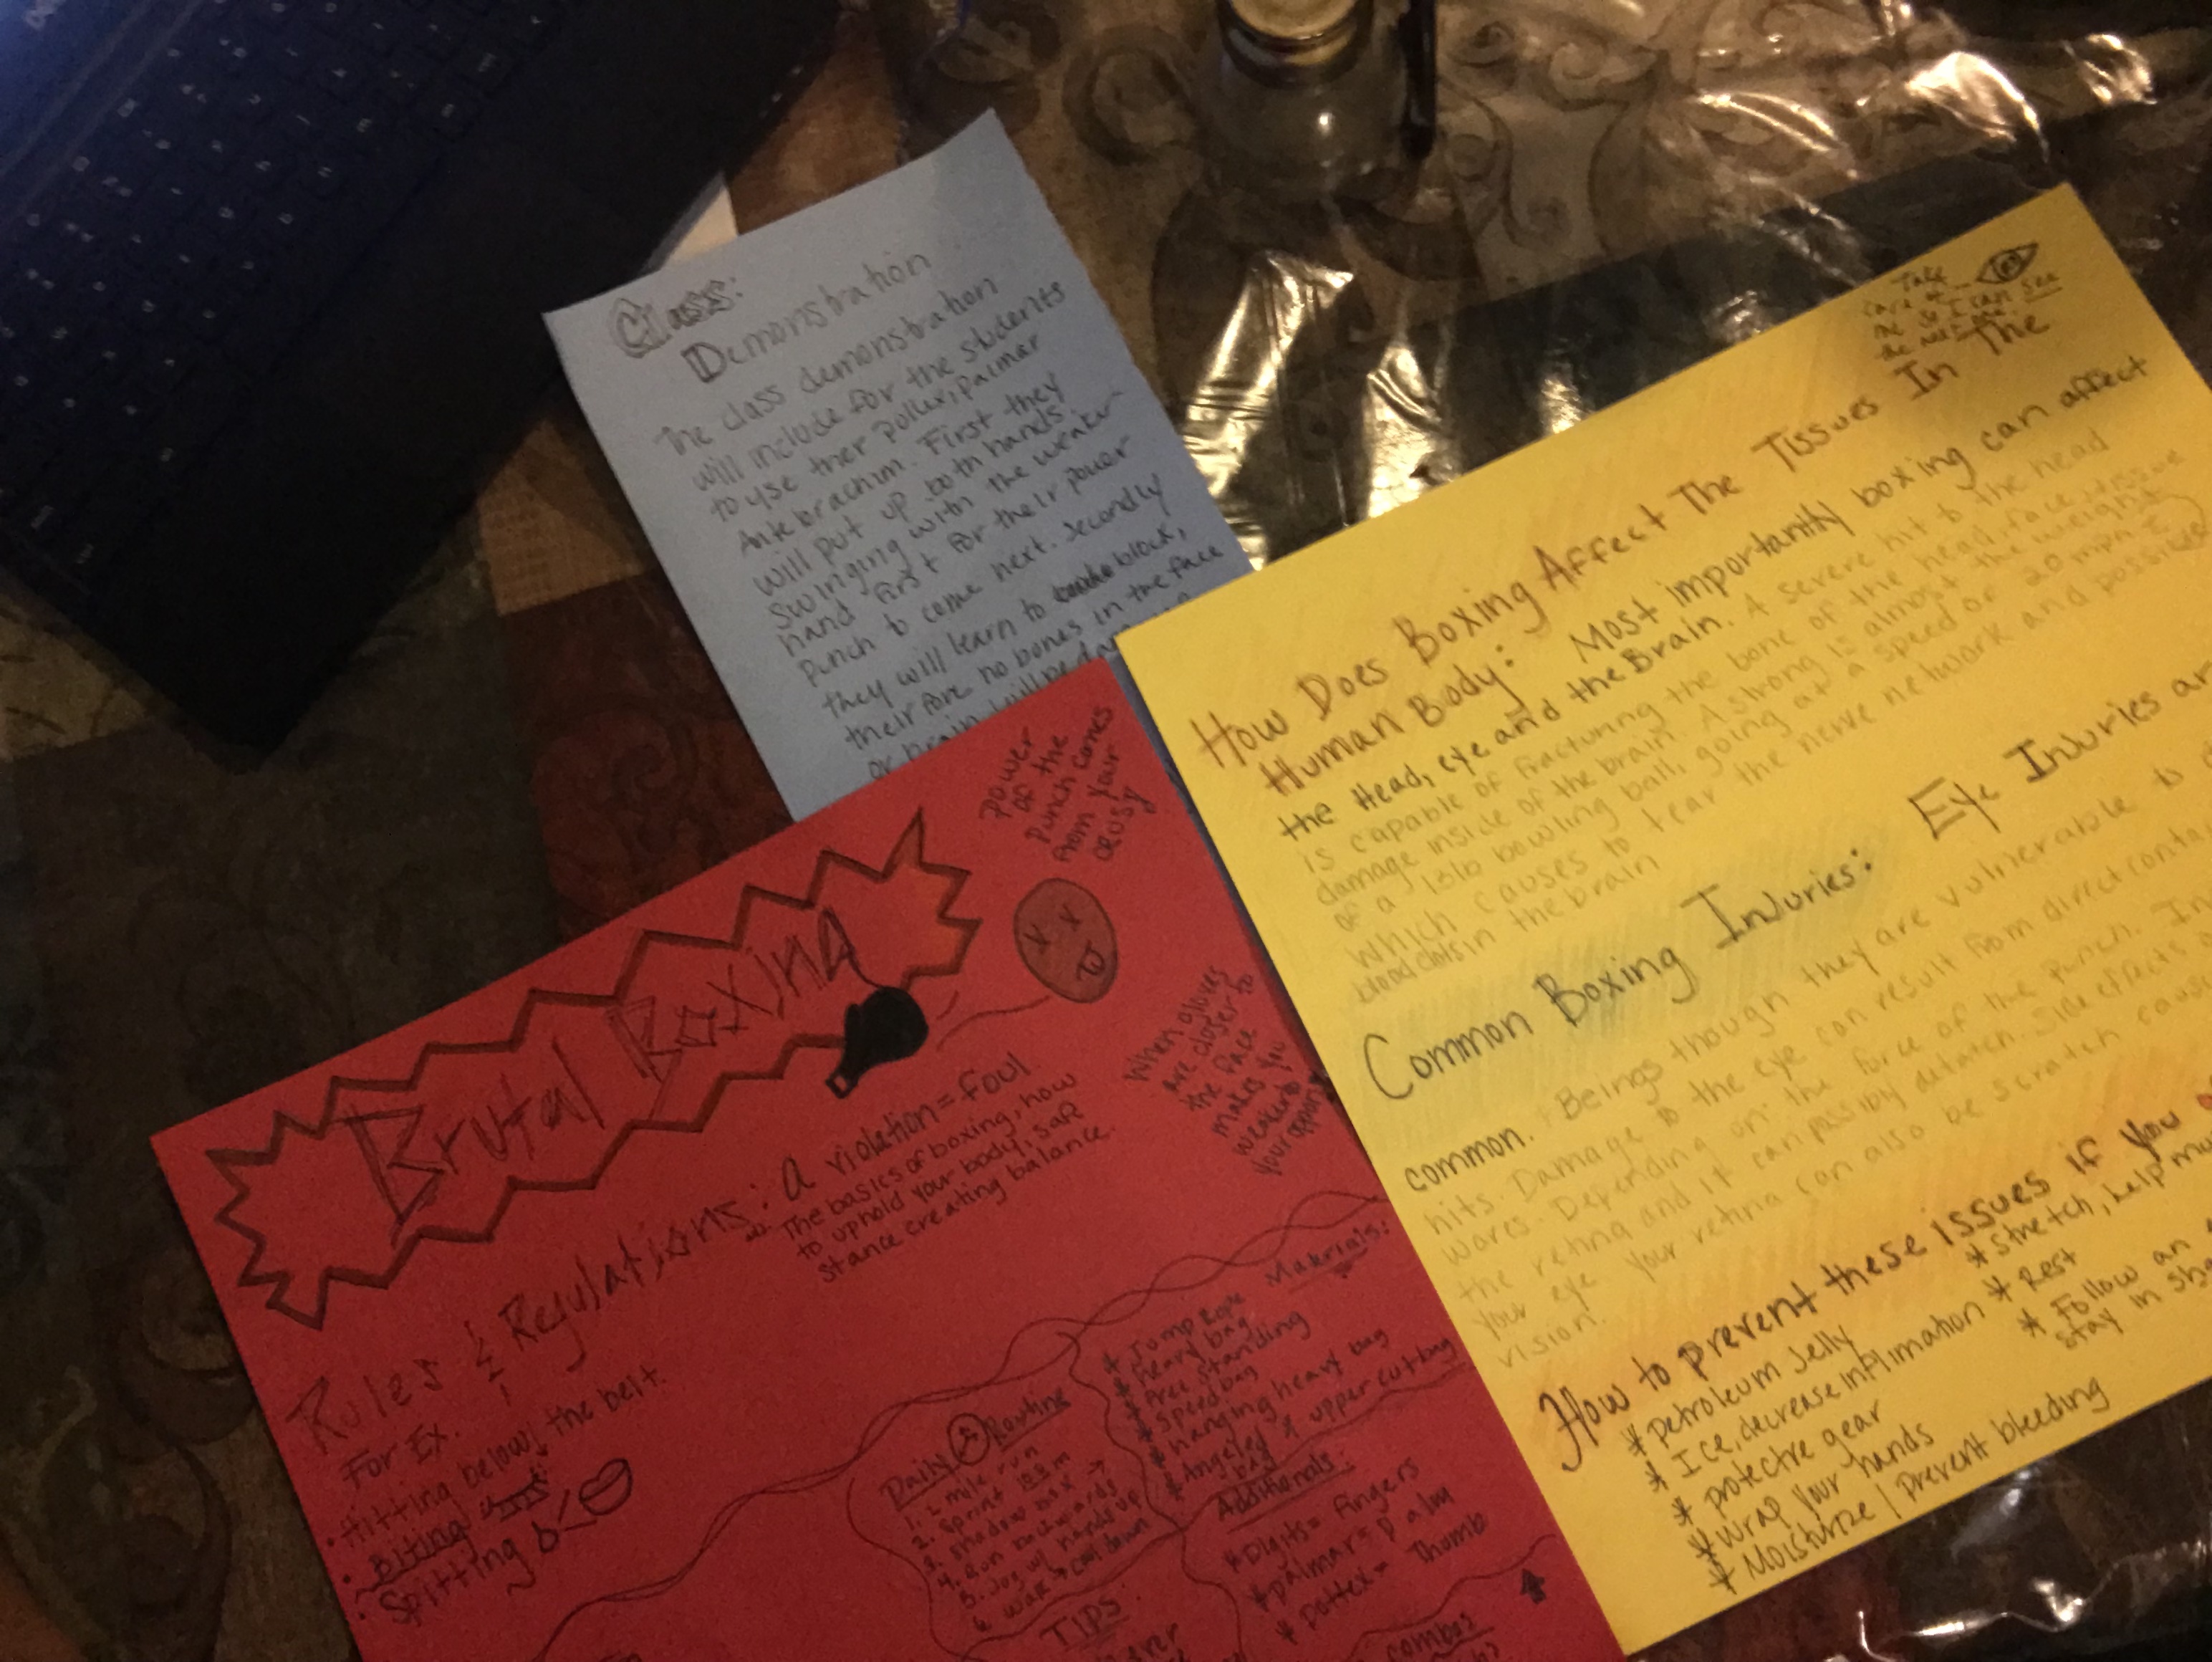 Class:
Demonstration
The class demonstration
will include for the students
to use ther pollex, palmar
Antebrachim. First they
will put up both hands
swinging with the weaker
hand first for their power
punch to come next. Secondly
they will learn to block,
their fore no bones in the face
or brain will be
Take
care of
me so I can see
the
How Does Boxing Affect The Tissues In The
Human Body: Most importantly boxing can affect
the Head, eye and the Brain. A severe hit to the head
is capable of fracturing the bone of the head, face, tissue
damage inside of the brain. A strong is almost the weight
of a 13lb bowling ball, going at a speed of 20 mph
which causes to tear the nerve network and possible
blood clots in the brain
Common Boxing Injuries: Eye Injuries ar
common. Beings though they are vulnerable to
hits. Damage to the eye can result from direct conta
wares. Depending on the force of the punch. In
the retina and it can possibly detatch. Side effects
your eye. Your retina can also be scratch caus
vision.
How to prevent these issues if you
* petroleum Jelly
* Ice, decrease inflimation
* protectve gear
* Wrap your hands
* Moisturize / Prevent bleeding
* Stretch, help mo
* Rest
* Follow an
stay in sha
Brutal Boxing
Power
of the
punch comes
from your
When gloves
are closer to
the face
makes you
weaker to
your oppon
Rules & Regulations: a violation = foul
The basics of boxing, how
to uphold your body, safe
stance creating balance.
For Ex.
• Hitting below the belt.
• Biting
• Spitting
Daily Routine
1. 2 mile run
2. Sprint 100m
3. shadow box →
4. Run backwards
5. Jog w/ hands up
6. walk → cool down
Materials:
* Jump Rope
* heavy bag
* Free standing
* Speed bag
* hanging heavy bag
* Angeled bag
* upper cut bag
Additionals:
* Digits = Fingers
* palmar = palm
* pollex = Thumb
TIPS:
combos